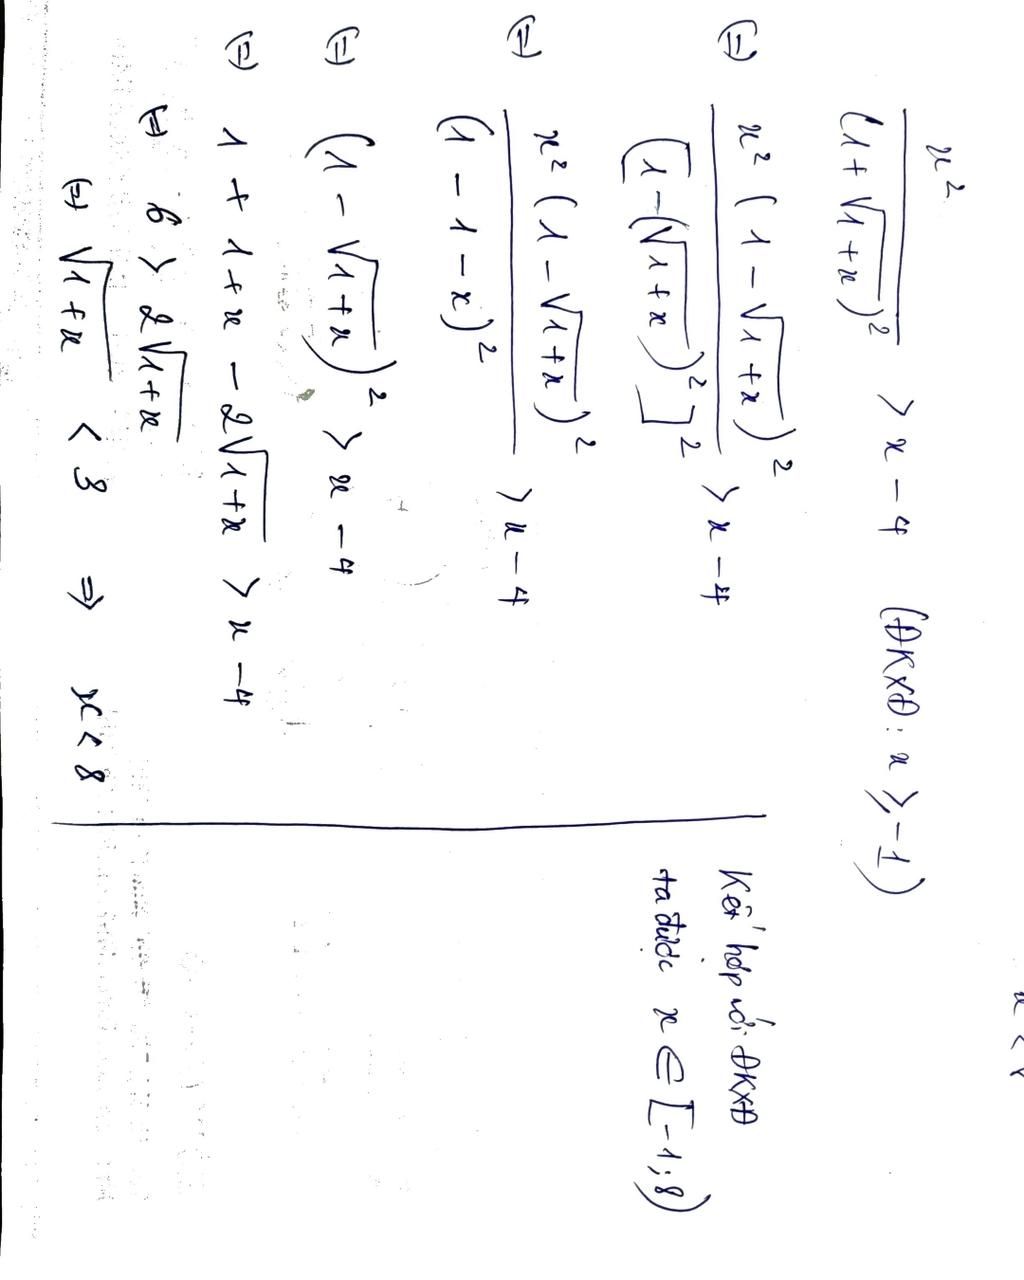 x² / (1+√(1+x))² > x-4 (ĐKXĐ: x ≥ -1)
(=) x²(1-√(1+x))² / [1-(√(1+x))²]² > x-4
(=) x²(1-√(1+x))² / (1-1-x)² > x-4
(=) (1-√(1+x))² > x-4
(=) 1+1+x-2√(1+x) > x-4
(=) 6 > 2√(1+x)
(=) √(1+x) < 3 => x < 8
Kết hợp với ĐKXĐ
ta được x ∈ [-1;8)